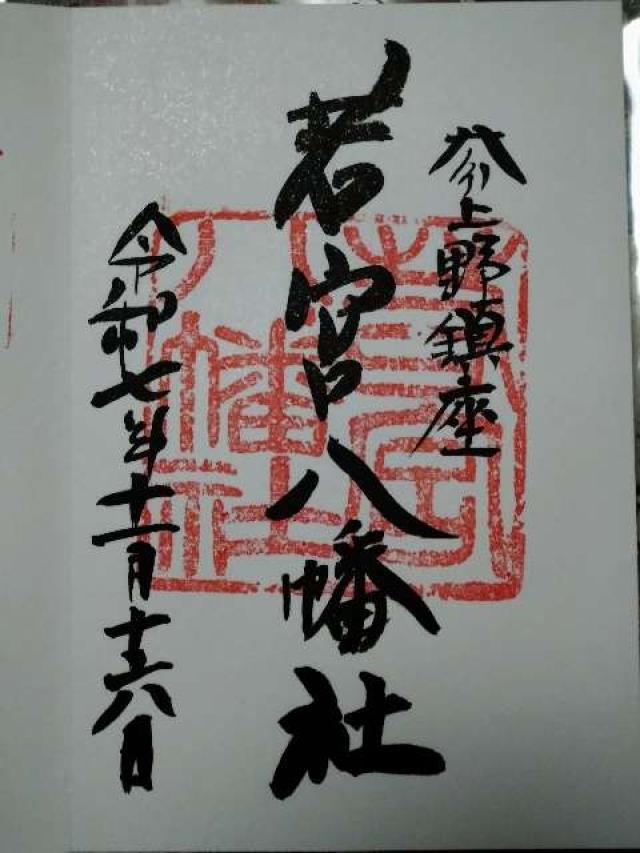 大分上野鎮座
若宮八幡社
令和七年十一月十六日
若宮
八幡社